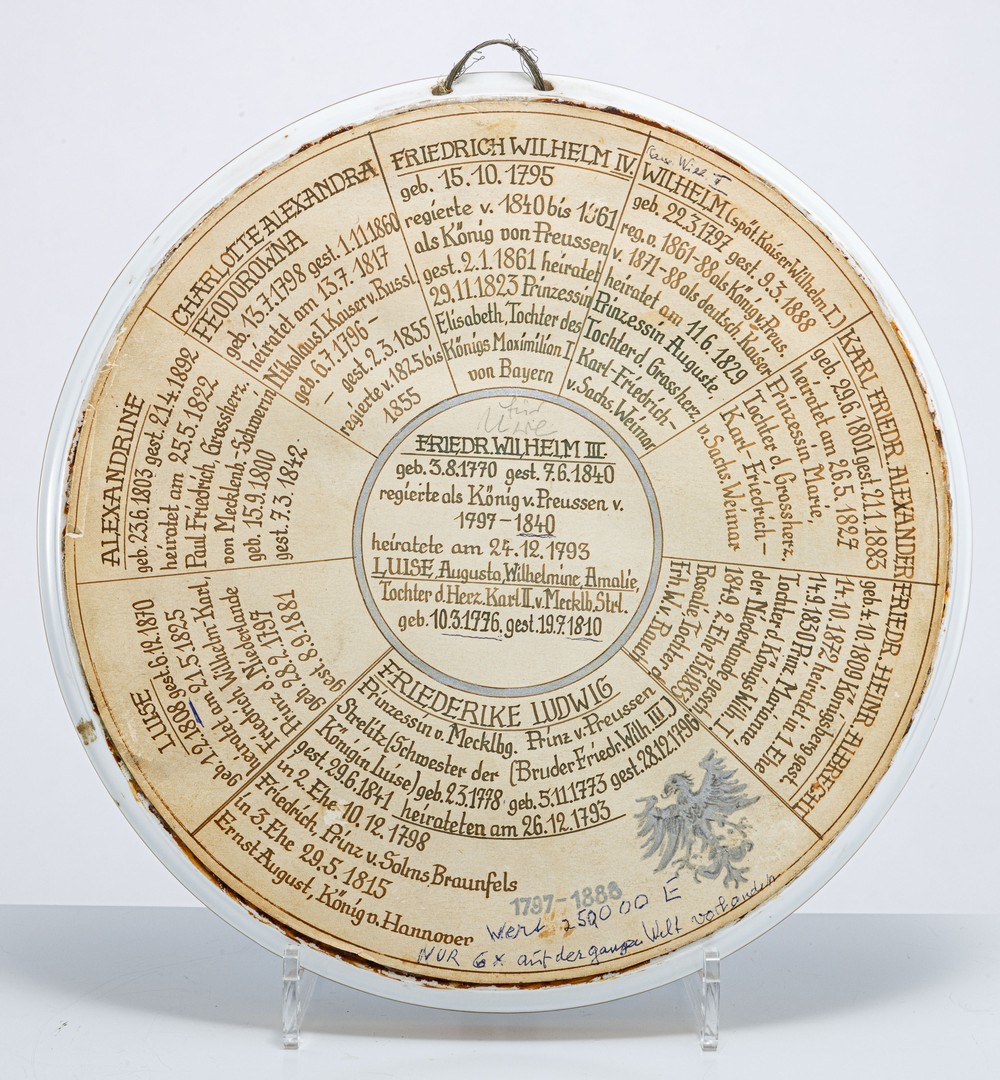 FRIEDRICH WILHELM IV.
geb. 15.10.1795
regierte v. 1840 bis 1861
als König von Preussen
gest. 2.1.1861 heiratet
29.11.1823 Prinzessin
Elisabeth, Tochter des
Königs Maximilian I
von Bayern
WILHELM (spät. Kaiser Wilhelm I.)
geb. 22.3.1797 gest. 9.3.1888
reg. v. 1861-88 als König v. Prus.
v. 1871-88 als deutsch. Kaiser
heiratet am 11.6.1829
Prinzessin Auguste
Tochter d. Grossherz.
Karl-Friedrich-
v. Sachs. Weimar
KARL FRIEDR. ALEXANDER
geb. 29.6.1801 gest. 21.1.1883
heiratet am 26.5.1827
Prinzessin Marie,
Tochter d. Grossherz.
Karl-Friedrich-
v. Sachs. Weimar
FRIEDR. HEINR. ALBRECHT
geb. 4.10.1809 Königsberg gest
14.10.1872 heiratet in 1. Ehe
14.9.1830 Prinz. Marianne
der Niederlande gesch.
Tochter d. Königs Wilh. I
1849 2. Ehe 13.6.1853
Rosalie Tochter d.
Frh. W. v. Rauch
FRIEDERIKE LUDWIG
Prinzessin v. Mecklbg. Prinz v. Preussen
Strelitz (Schwester der (Bruder Friedr. Wilh. III.)
Königin Luise) geb. 2.3.1778 geb. 5.11.1773 gest. 28.12.1796
gest. 29.6.1841 heirateten am 26.12.1793
in 2. Ehe 10.12.1798
Friedrich, Prinz v. Solms Braunfels
in 3. Ehe 29.5.1815
Ernst August, König v. Hannover
1797-1888
Wert 250000 E
NUR 6x auf der ganzen Welt vorhanden
LUISE
geb. 1.2.1808 gest. 6.12.1870
heiratet am 21.5.1825
Friedrich Wilhelm Karl,
Prinz d. Niederlande
geb. 28.2.1797
gest. 8.9.1881
ALEXANDRINE
geb. 23.6.1803 gest. 21.4.1892
heiratet am 25.5.1822
Paul Friedrich, Grossherz.
von Mecklenb.-Schwerin
geb. 15.9.1800
gest. 7.3.1842.
CHARLOTTE ALEXANDRA
FEODOROWNA
geb. 13.7.1798 gest. 1.11.1860
heiratet am 13.7.1817
Nikolaus I. Kaiser v. Russl.
geb. 6.7.1796-
- gest. 2.3.1855
regierte v. 1825 bis
1855
für
FRIEDR. WILHELM III.
geb. 3.8.1770 gest. 7.6.1840
regierte als König v. Preussen v.
1797-1840
heiratete am 24.12.1793
LUISE, Augusta, Wilhelmine, Amalie,
Tochter d. Herz. Karl II. v. Mecklb. Strl.
geb. 10.3.1776, gest. 19.7.1810